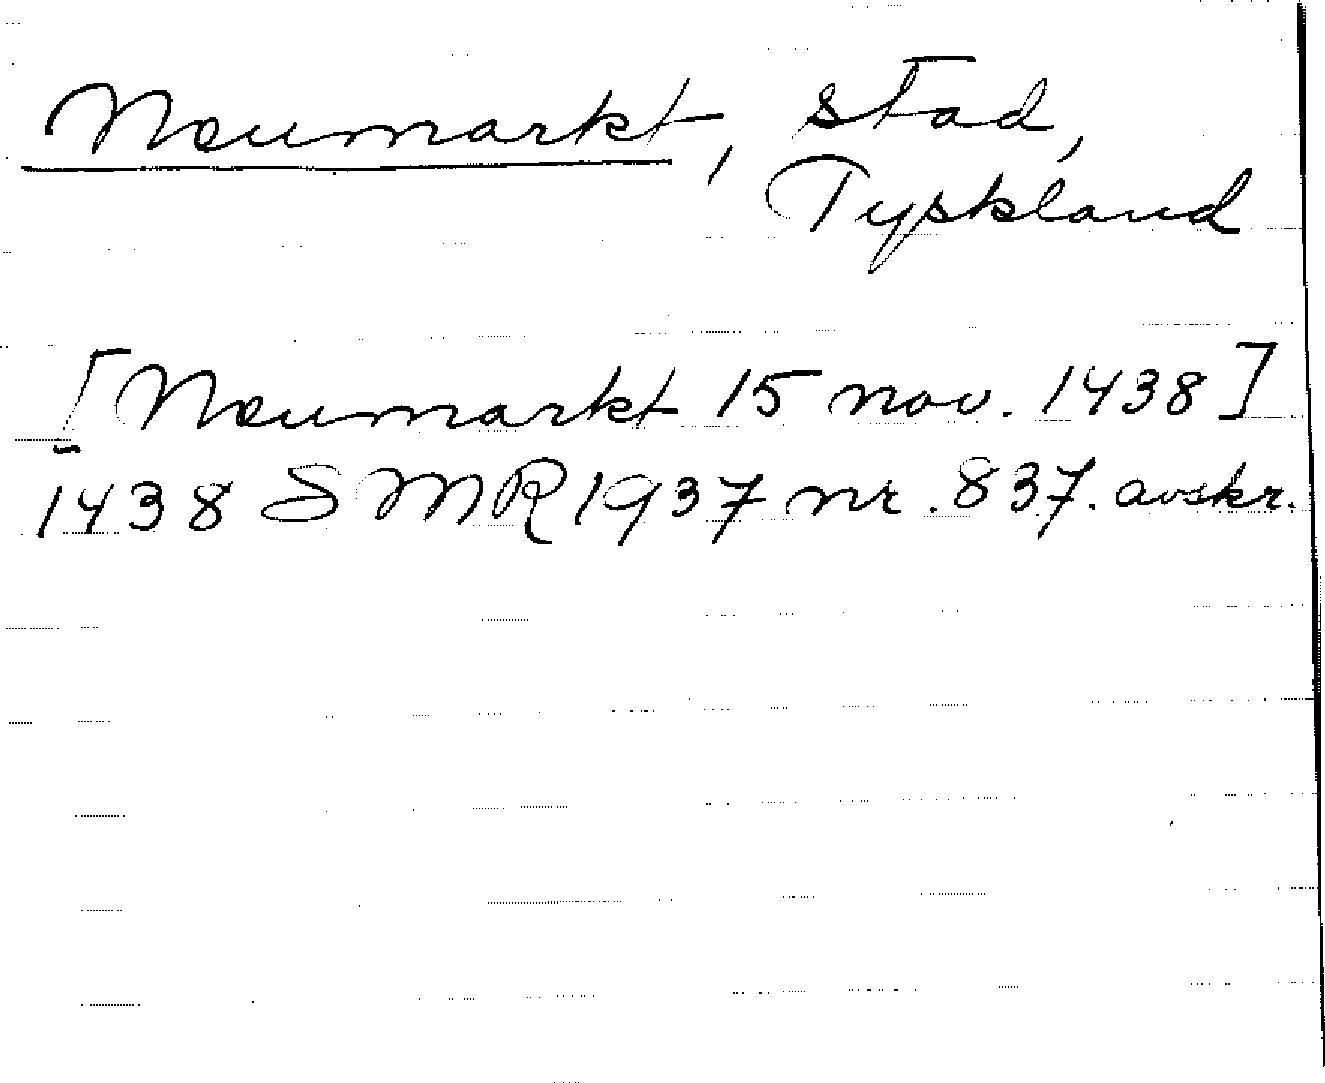 Neumarkt, stad,
Tyskland
[Neumarkt 15 nov. 1438]
1438 SMR 1937 nr. 837. avskr.